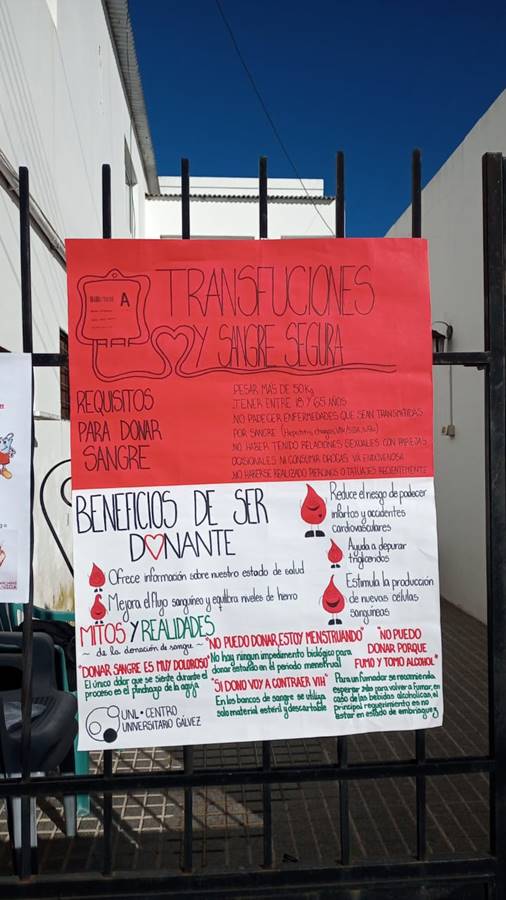 A
TRANSFUCIONES
Y SANGRE SEGURA
REQUISITOS
PARA DONAR
SANGRE
PESAR MAS DE 50Kg
TENER ENTRE 18 Y 65 AÑOS
NO PADECER ENFERMEDADES QUE SEAN TRANSMITIDAS
POR SANGRE
NO HABER TENIDO RELACIONES SEXUALES CON PAREJAS
OCASIONALES NI CONSUMIR DROGAS VÍA ENDOVENOSA
NO HABERSE REALIZADO PERCINGS O TATUAJES RECIENTEMENTE
BENEFICIOS DE SER
DONANTE
Ofrece información sobre nuestro estado de salud
Mejora el flujo sanguíneo y equilibra niveles de hierro
Reduce el riesgo de padecer
infartos y accidentes
cardiovasculares
Ayuda a depurar
trigliceridos
Estimula la producción
de nuevas células
sanguíneas
MITOS Y REALIDADES
~ de la donación de sangre ~
"DONAR SANGRE ES MUY DOLOROSO"
El único dolor que se siente durante el
proceso es el pinchazo de la aguja
"NO PUEDO DONAR, ESTOY MENSTRUANDO"
No hay ningun impedimento biológico para
donar estando en el periodo menstrual
"SI DONO VOY A CONTRAER VIH"
En los bancos de sangre se utiliza
solo material estéril y descartable
"NO PUEDO
DONAR PORQUE
FUMO Y TOMO ALCOHOL"
Para un fumador se recomienda
esperar 2 hs para volver a fumar, en
caso de las bebidas alcoholicas, el
principal requerimiento es no
estar en estado de embriaguez
UNL • CENTRO
UNIVERSITARIO GÁLVEZ